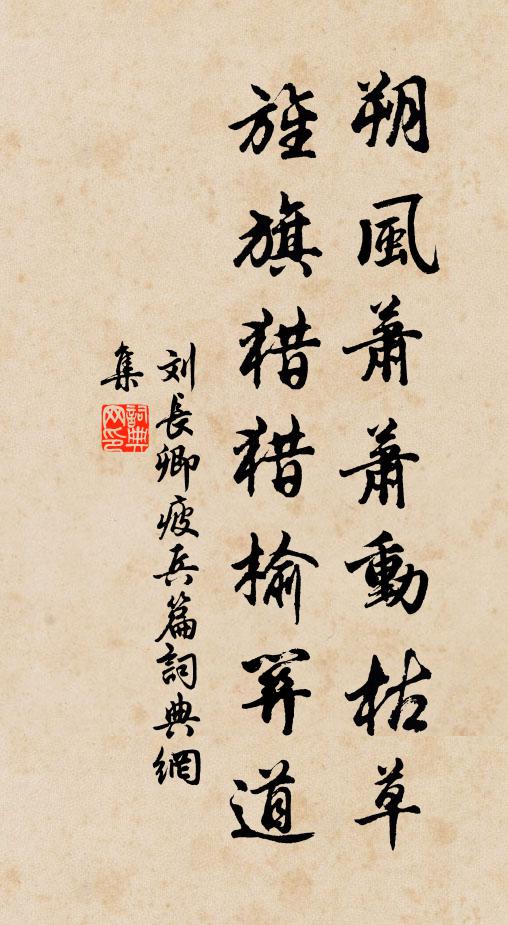 朔風蕭蕭動枯草
旌旗猎猎榆関道
刘長卿疲兵篇詞典網
集
詞典网印